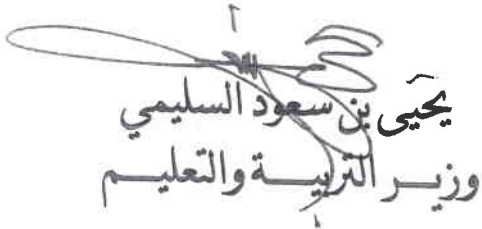 يحيى بن سعود السليمي
وزيـر التربيـــة والتعليـــم